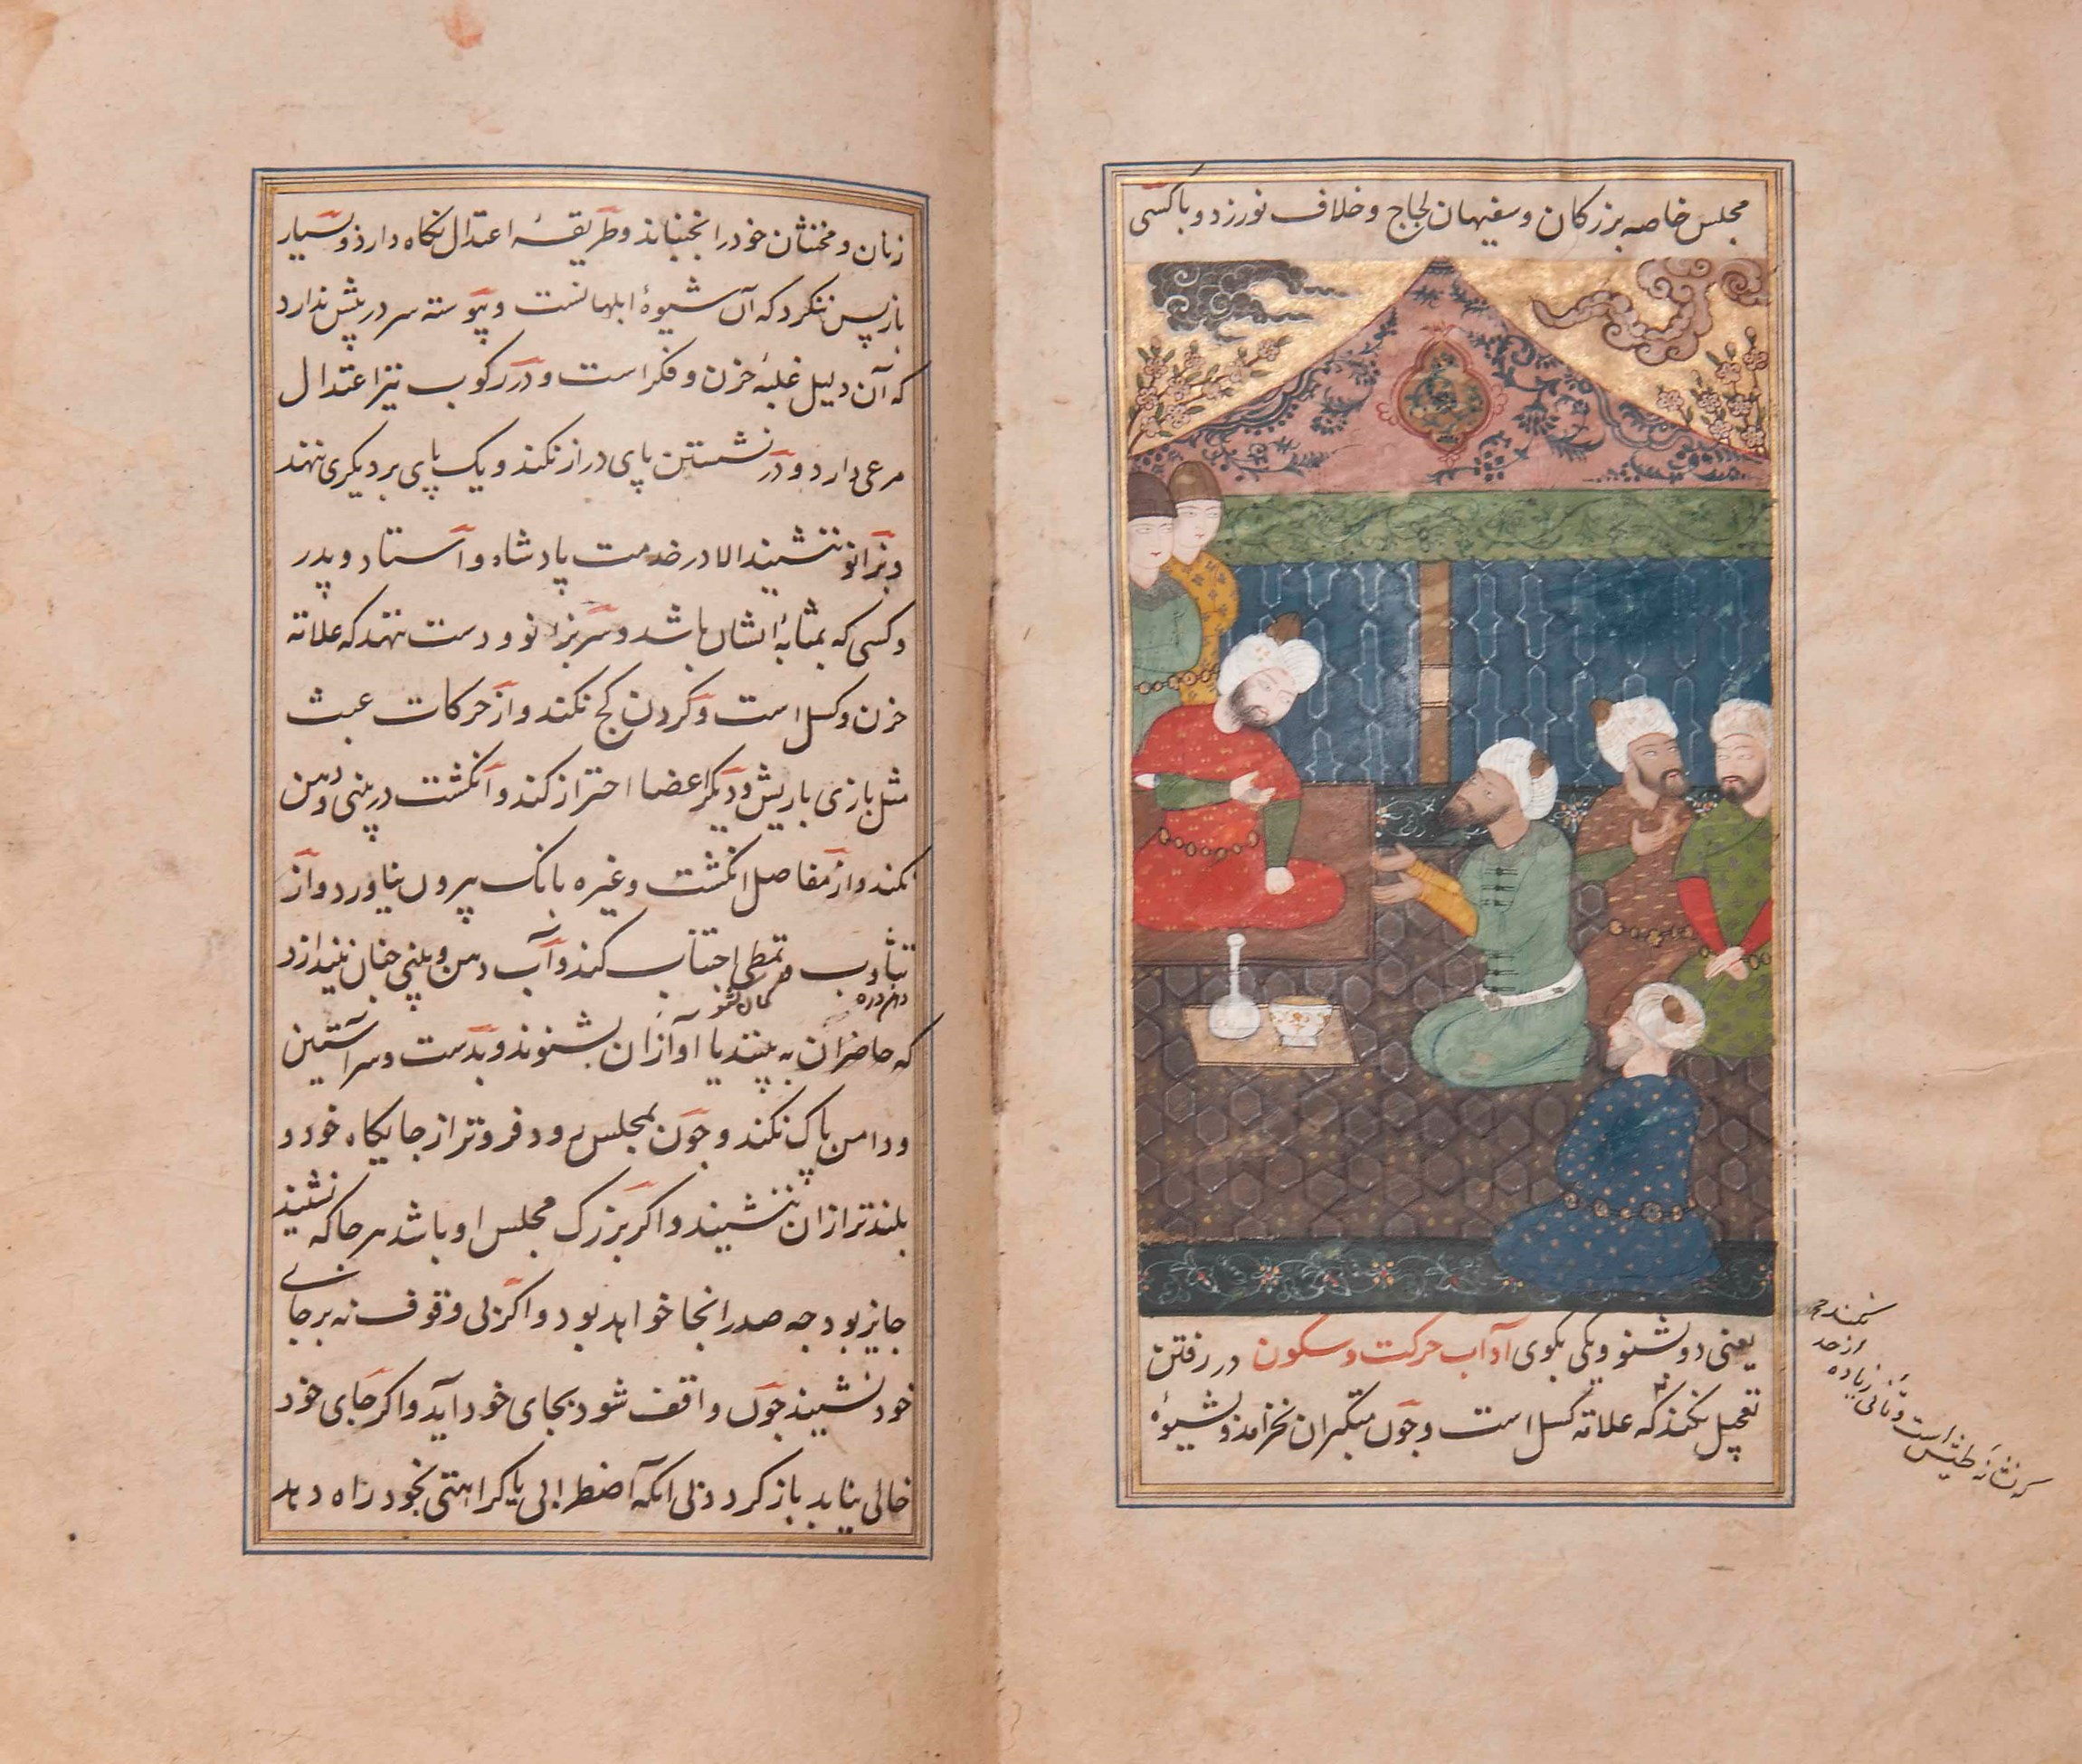 مجلس خاصه بزرکان و سفیهان لجاج و خلاف نورزد و با کسی
یعنی دو بشنو و یکی بکوی آداب حرکت و سکون در رفتن
تعجیل نکند که علامة کسل است و جون متکبران نخرامد و بشیوۀ
نکند جه
از حد
زیاده
که نشانه طیش است و تانی
زنان و مخنثان خود را نجنباند و طریقۀ اعتدال نکاه دارد و بسیار
باز پس ننکرد که آن شیوۀ ابلهانست و پیوسته سر در پیش ندارد
که آن دلیل غلبۀ حزن و فکر است و در رکوب نیز اعتدال
مرعی دارد و در نشستن پای دراز نکند و یک پای بر دیکری ننهد
و بزانو ننشیند الا در خدمت پادشاه و استاد و پدر
و کسی که بمثابۀ ایشان باشد و سر بزانو و دست ننهد که علامة
حزن و کسل است و کردن کج نکند و از حرکات عبث
مثل بازی با ریش و دیکر اعضا احتراز کند و انکشت در بینی و دهن
نکند و از مفاصل انکشت و غیره بانک بیرون نیاورد و از
تثاوب و تمطی اجتناب کند و آب دهن و بینی چنان نیندازد
که حاضران به بینند یا آواز آن بشنوند و بدست و سر آستین
و دامن پاک نکند و جون بمجلس رود فروتر از جایکاه خود و
بلندتر از ان ننشیند و اکر بزرک مجلس او باشد هر جا که نشیند
جایز بود جه صدر انجا خواهد بود و اکر بی وقوف نه بر جای
خود نشیند جون واقف شود بجای خود آید و اکر جای خود
خالی نیابد باز کردد بی انکه اضطرابی یا کراهتی بخود راه دهد